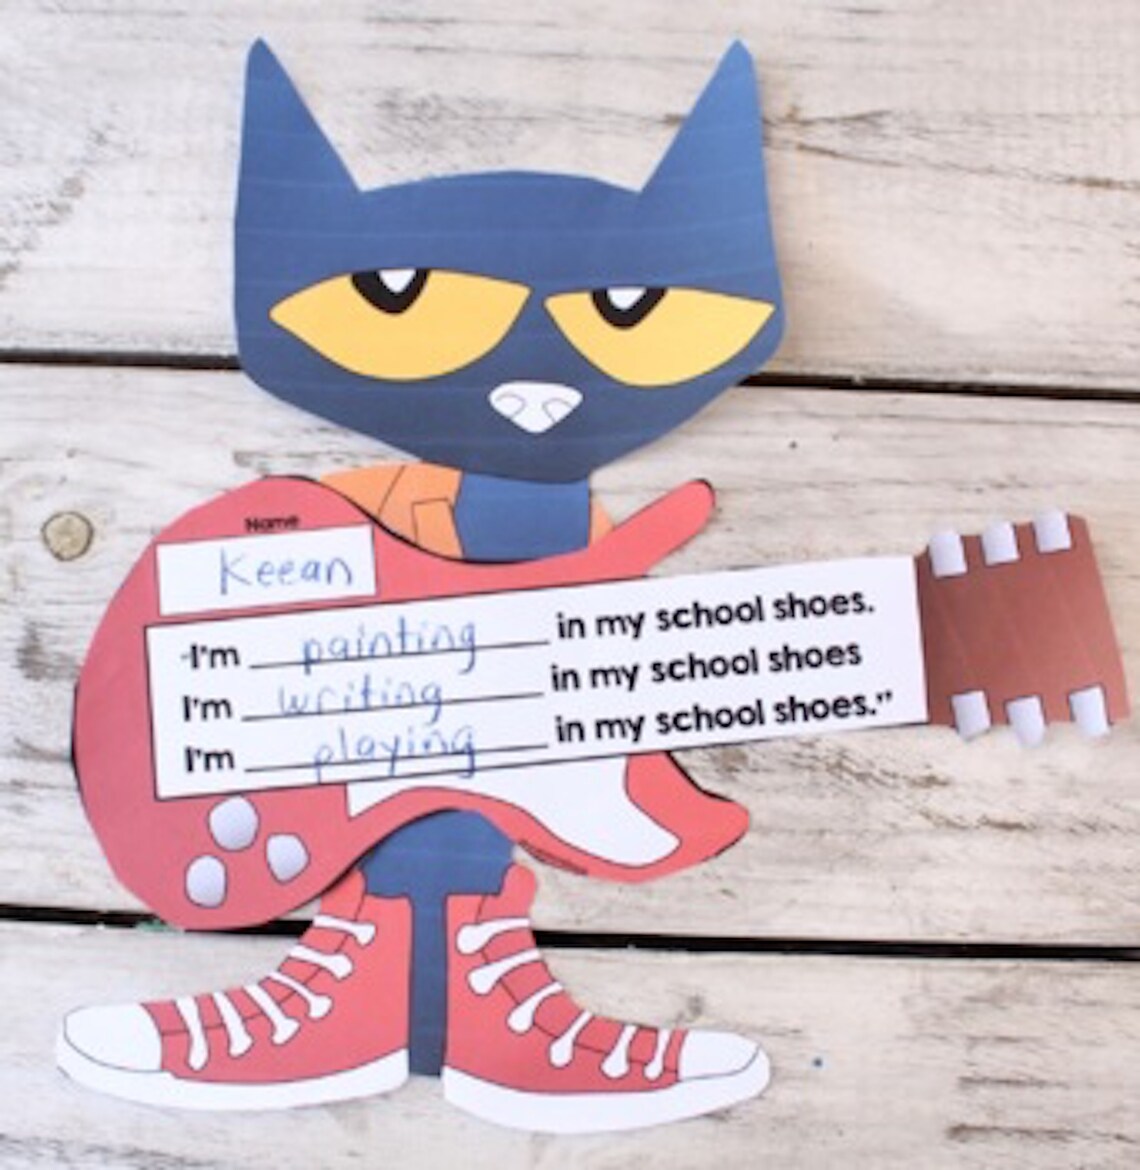 Name
Keean
"I'm painting in my school shoes.
I'm writing in my school shoes
I'm playing in my school shoes."